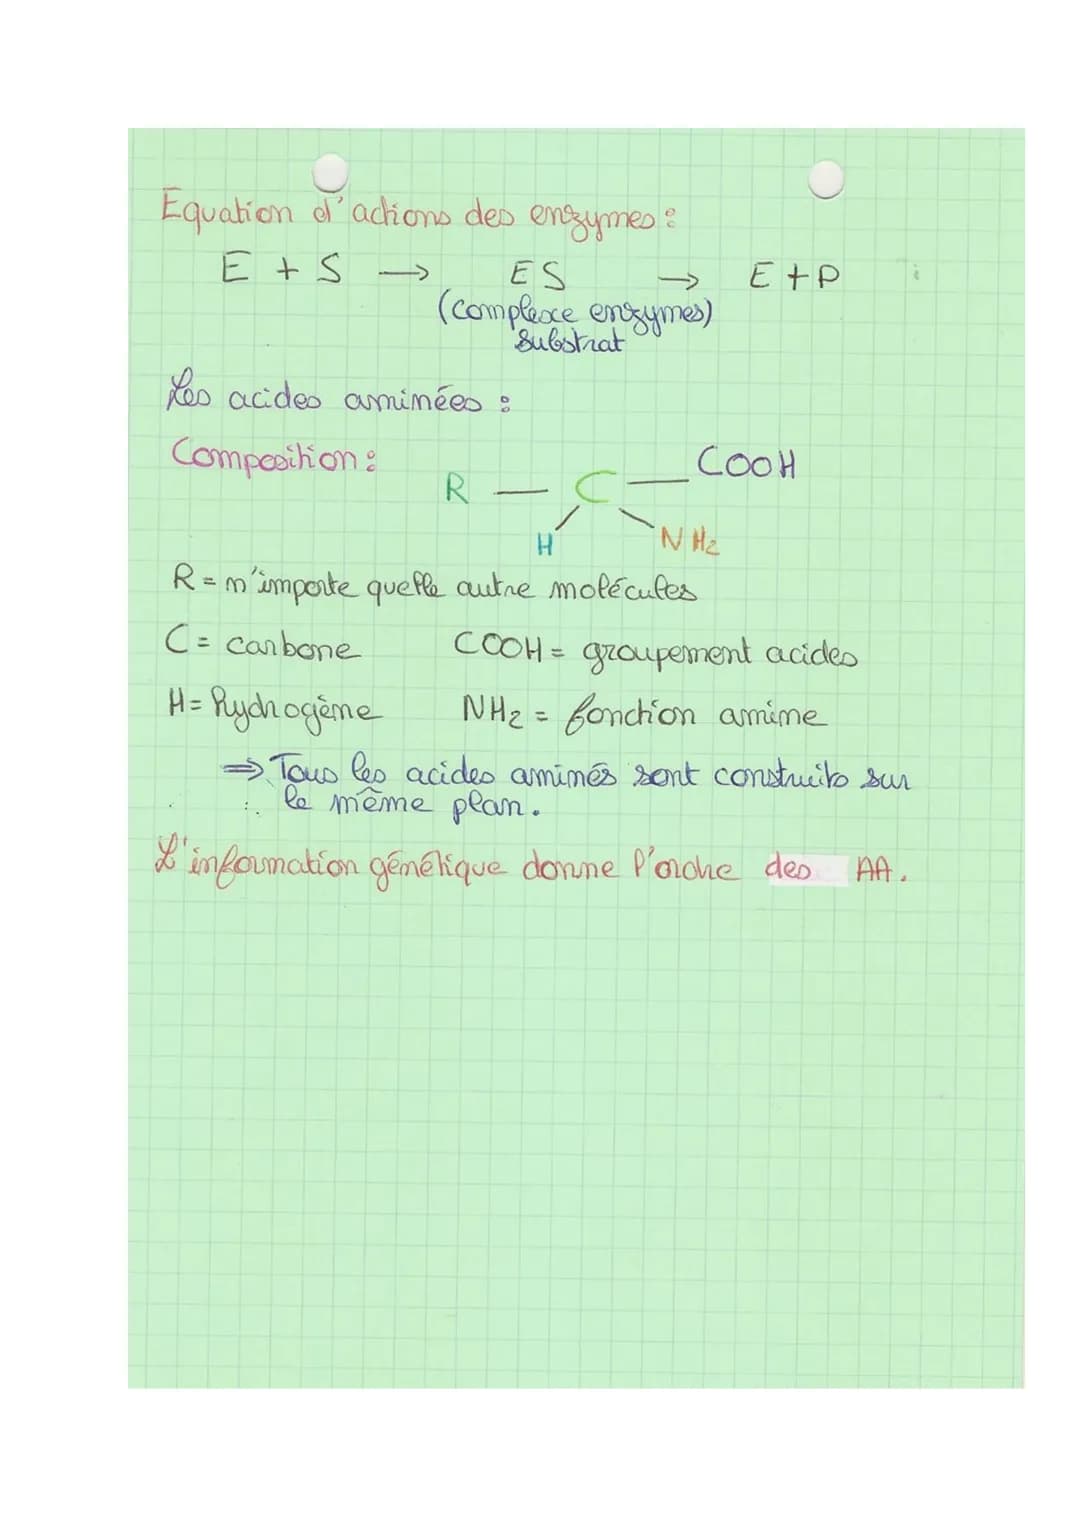 Equation d'actions des enzymes :
E + S → ES → E + P
(complexe enzymes)
Substrat
Les acides aminées :
Composition :
COOH
R — C —
H NH2
R = n'importe quelle autre molécules
C = carbone COOH = groupement acides
H = hydrogène NH2 = fonction amine
⇒ Tous les acides aminés sont construits sur
le même plan.
L'information génétique donne l'ordre des AA.